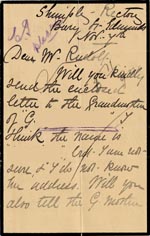 Shimpling Rectory
Bury St Edmunds
Nov. 7th
Dear Mr. Rudolf
Will you kindly
send the enclosed
letter to the Grandmother
of "G.
think the name is
but I am not
sure & I do not know
the address. Will you
also tell the G mother